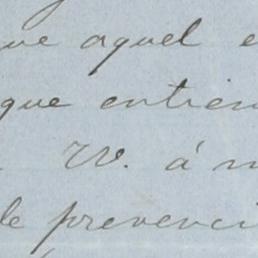 que aquel e
que entien
W. á m
de prevenci